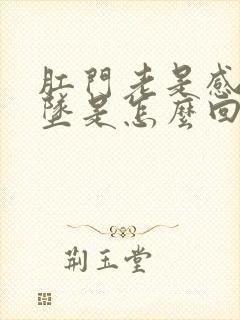 肛門老是感
墜是怎麼回
荆玉堂